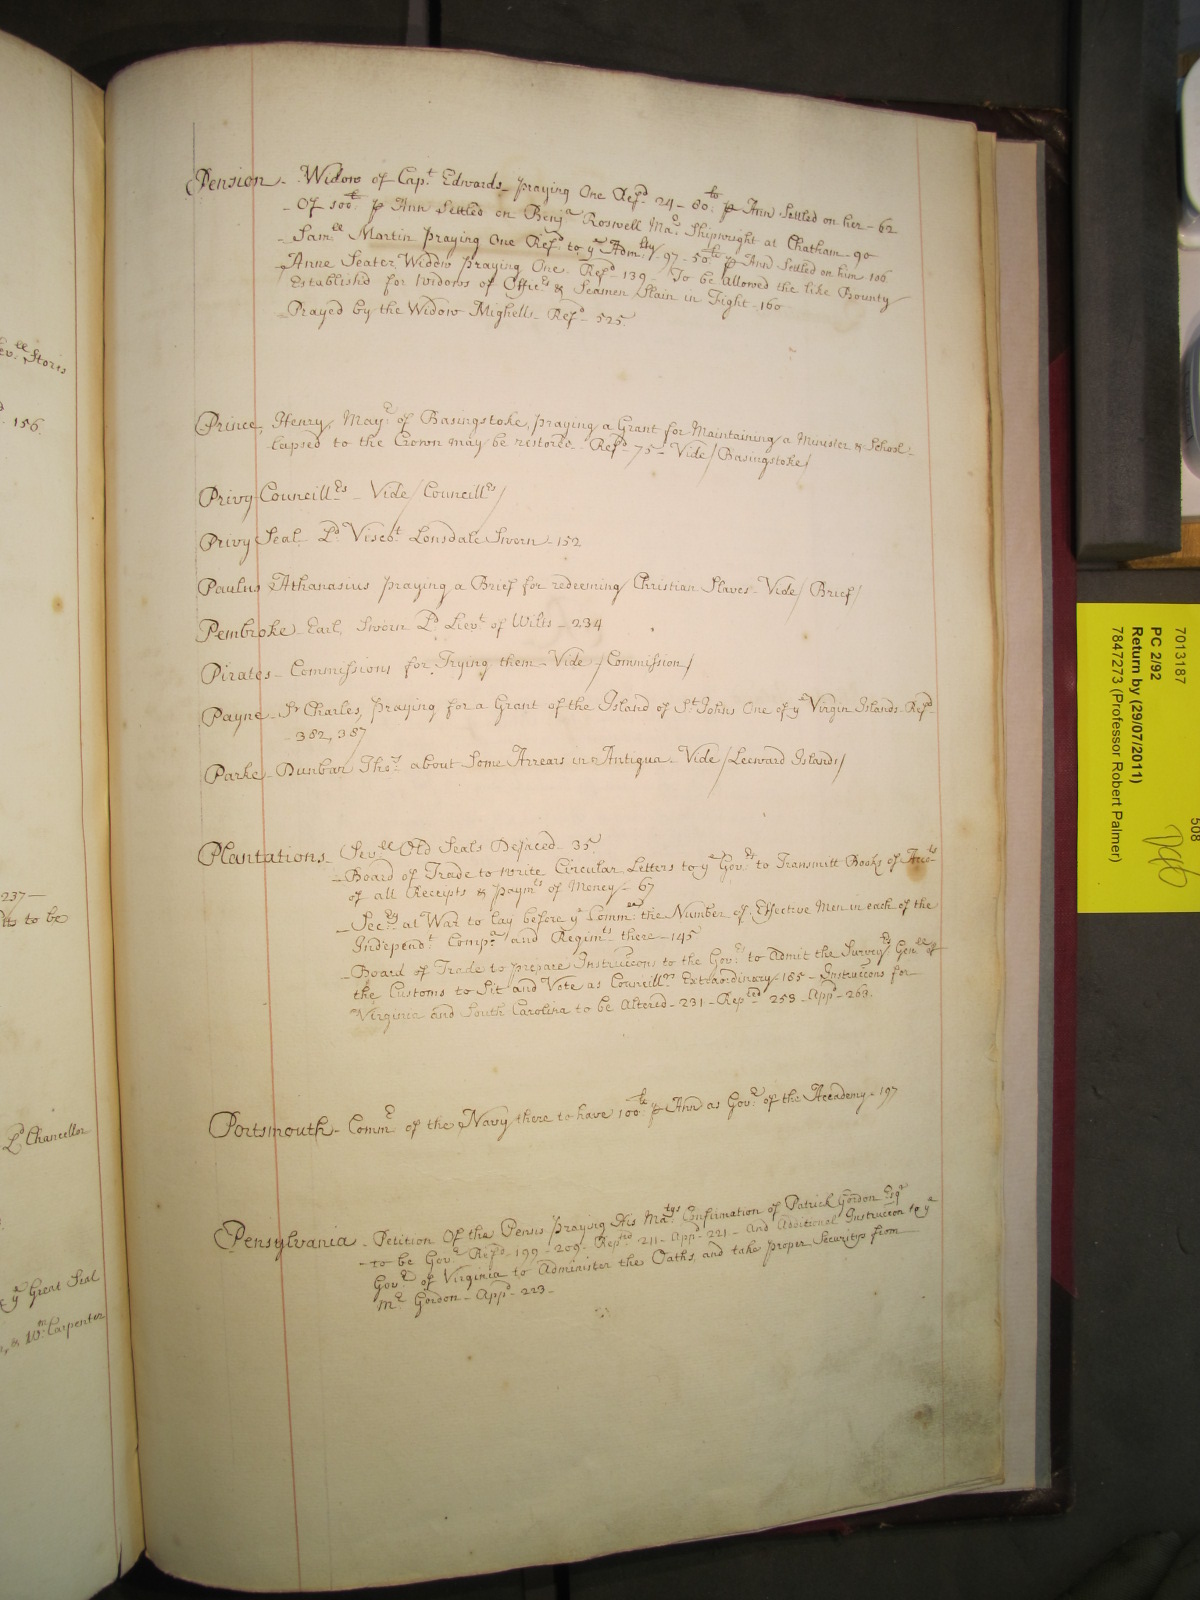 ev: ll Stores
156
237 —
ts to be
Ld Chancellor
& ye Great Seal
Wm Carpenter
Pension - Widow of Capt. Edwards - praying One Refd. 24 - 80. lb p Ann Settled on her - 62
- Of 100. lb p Ann Settled on Benja. Roswell Mar. Shipwright at Chatham - 90
- Samll. Martin praying One Refd. to ye Admlty 97 - 50. lb p Ann Settled on him 106
- Anne Seater Widow praying One - Refd. 139 - To be Allowed the like Bounty
Establishd for Widows of Officrs & Seamen Slain in Fight - 160
- Prayed by the Widow Mighells - Refd. - 525
Prince, Henry, Mayr. of Basingstoke, praying a Grant for Maintaining a Minister & School
lapsed to the Crown may be restored - Refd. 75 - Vide/Basingstoke/
Privy Councillrs - Vide/Councillrs/
Privy Seal - Ld. Viscot. Lonsdale Sworn - 152
Paulus Athanasius praying a Brief for redeeming Christian Slaves - Vide/Brief/
Pembroke - Earl, Sworn Ld. Lievt. of Wilts - 234
Pirates - Commissions for Trying them - Vide/Commission/
Payne - Sr. Charles, praying for a Grant of the Island of St. Johns One of ye Virgin Islands - Refd.
- 382, 387
Parke - Dunbar Thos. about Some Arrears in Antigua - Vide/Leeward Islands/
Plantations - Sevll. Old Seals Defaced - 35
- Board of Trade to write Circular Letters to ye Govrs. to Transmitt Books of Accts
of all Receipts & paymts of Money - 67
- Secry. at War to lay before ye Commee the Number of Effective Men in each of the
Independt. Compas. and Regimts. there - 145
- Board of Trade to prepare Instruccons to the Govrs. to Admit the Surveyrs. Genll. of
the Customs to Sit and Vote as Councillrs. Extraordinary - 185 - Instruccons for
Virginia and South Carolina to be Altered - 231 - Repted 258 - Appd. - 263.
Portsmouth - Commr. of the Navy there to have 100. lb p Ann as Govr. of the Accademy - 197
Pensylvania - Petition Of the Penns praying His Matys Confirmation of Patrick Gordon Esqr
- to be Govr. Refd. 199 - 209. Repted 211 - Appd. 221 - And Additional Instruccon to ye
Govr. of Virginia to Administer the Oaths, and take proper Securitys from
Mr. Gordon - Appd. 223 -
7013187
PC 2/92
Return by (29/07/2011)
7847273 (Professor Robert Palmer)
508